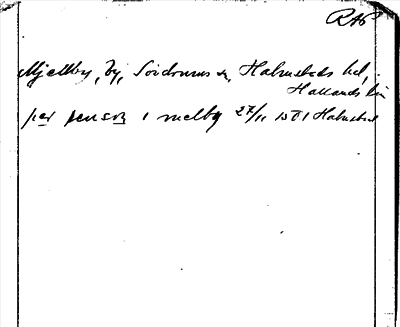 RAP
Mjellby, by, Söndrums sn, Halmstads hd,
Hallands län
per jenson i melby 27/11 1581 Halmstad